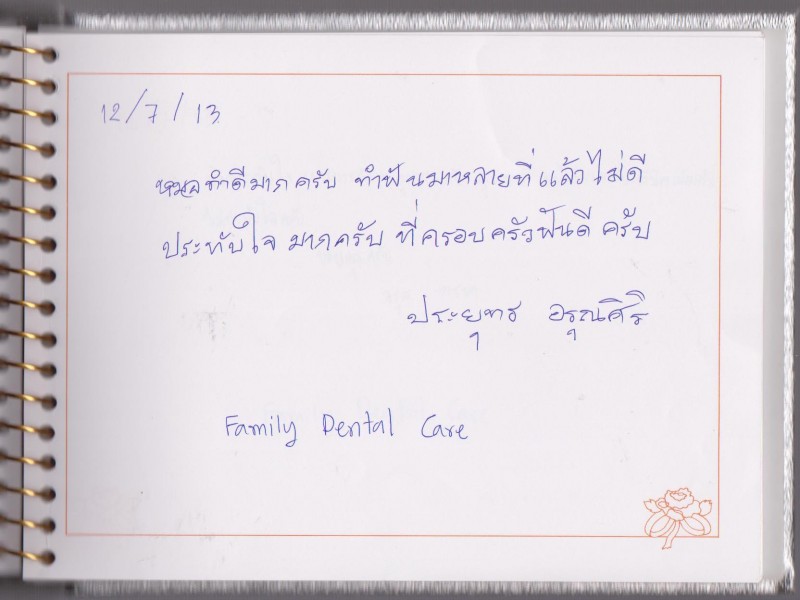 12/7/13
หมอทำดีมากครับ ทำฟันมาหลายที่แล้วไม่ดี
ประทับใจ มากครับ ที่ครอบครัวฟันดี ครับ
ประยุทธ อรุณศิริ
Family Dental Care